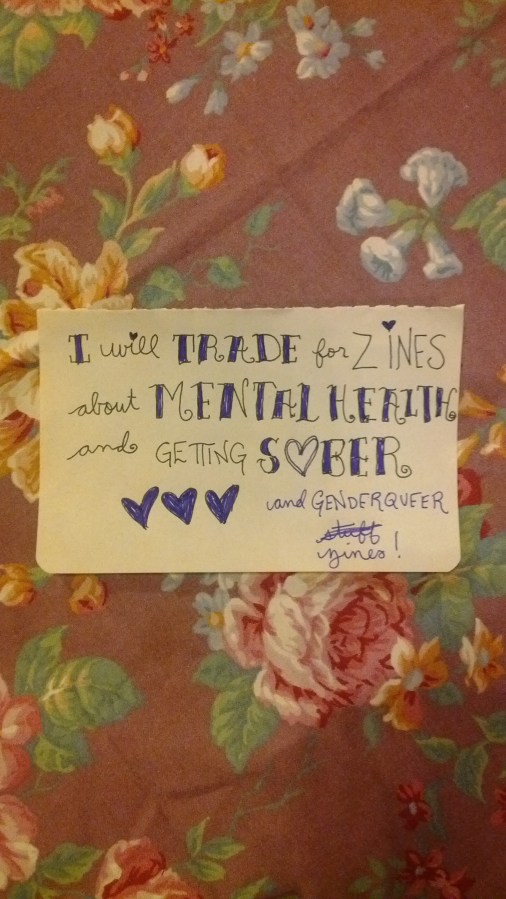 I will TRADE for ZINES
about MENTAL HEALTH
and GETTING SOBER
and GENDERQUEER
stuff
zines!